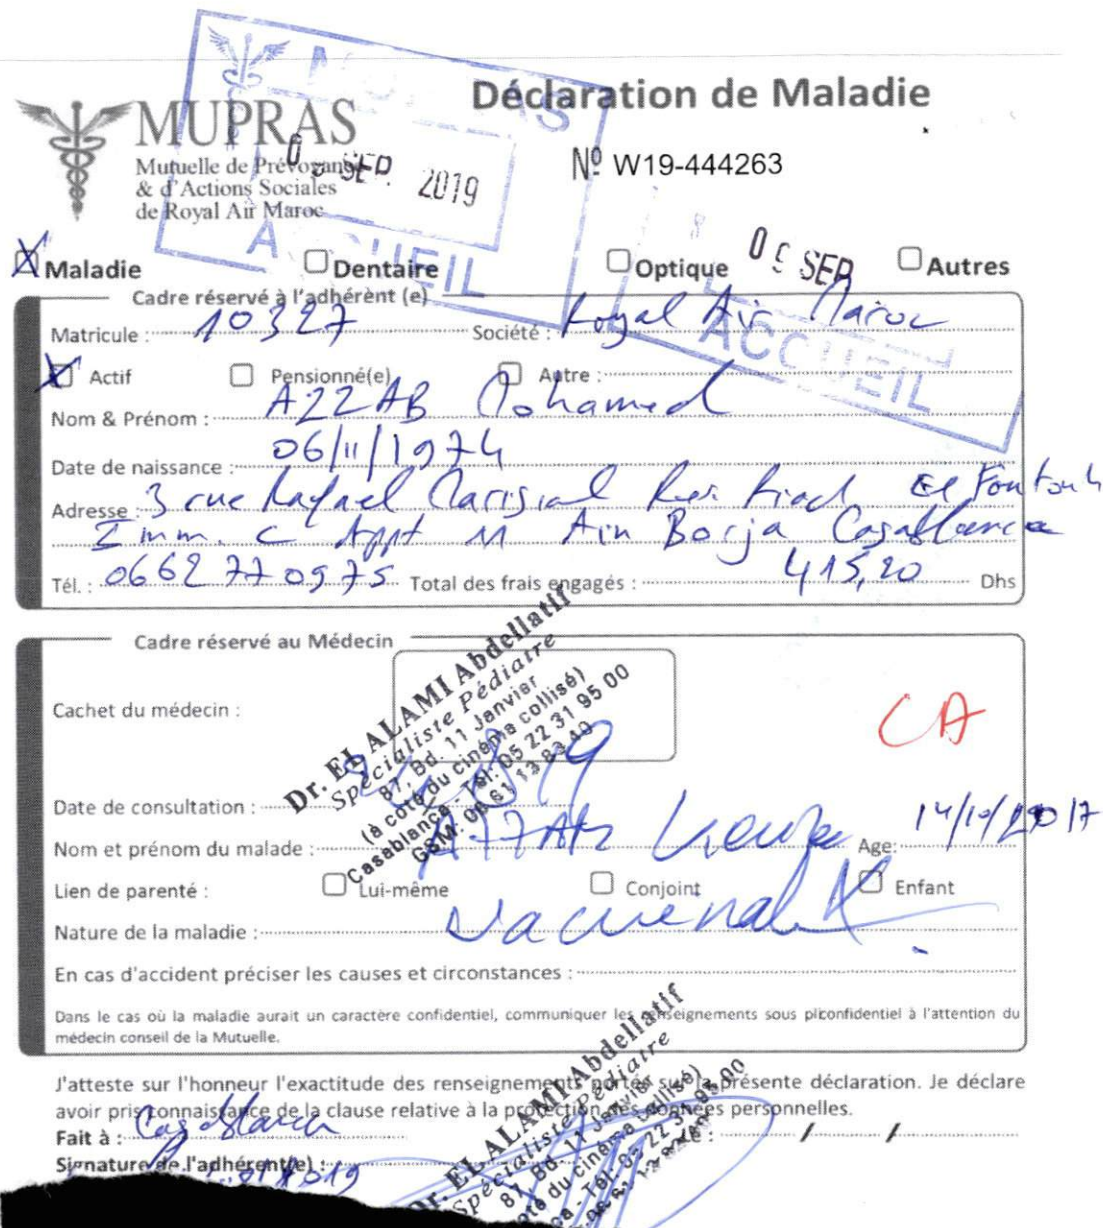 Déclaration de Maladie
MUPRAS
Mutuelle de Prévoyance
& d'Actions Sociales
de Royal Air Maroc
Nº W19-444263
SEP. 2019
ACCUEIL
SEP
ACCUEIL
Maladie Dentaire Optique Autres
Cadre réservé à l'adhérent (e)
Matricule : 10327 Société : Royal Air Maroc
Actif Pensionné(e) Autre :
Nom & Prénom : AZZAB Mohamed
Date de naissance : 06/11/1974
Adresse : 3 rue Rafael Res. Riad El Foutouh
Imm. C Appt 11 Ain Borja Casablanca
Tél. : 0662 77 09 75 Total des frais engagés : 415,20 Dhs
Cadre réservé au Médecin
Cachet du médecin :
Dr. EL ALAMI Abdellatif
Spécialiste Pédiatre
87, Bd. 11 Janvier
(à coté du cinéma collisé)
Casablanca - Tél. 05 22 31 95 00
CA
Date de consultation :
Nom et prénom du malade : Age: 14/10/2017
Lien de parenté : Lui-même Conjoint Enfant
Nature de la maladie :
En cas d'accident préciser les causes et circonstances :
Dans le cas où la maladie aurait un caractère confidentiel, communiquer les renseignements sous pliconfidentiel à l'attention du
médecin conseil de la Mutuelle.
J'atteste sur l'honneur l'exactitude des renseignements portés sur la présente déclaration. Je déclare
avoir pris connaissance de la clause relative à la protection des données personnelles.
Fait à : Casablanca / /
Signature de l'adhérent(e) :
Dr. EL ALAMI Abdellatif
Spécialiste Pédiatre
87, Bd. 11 Janvier